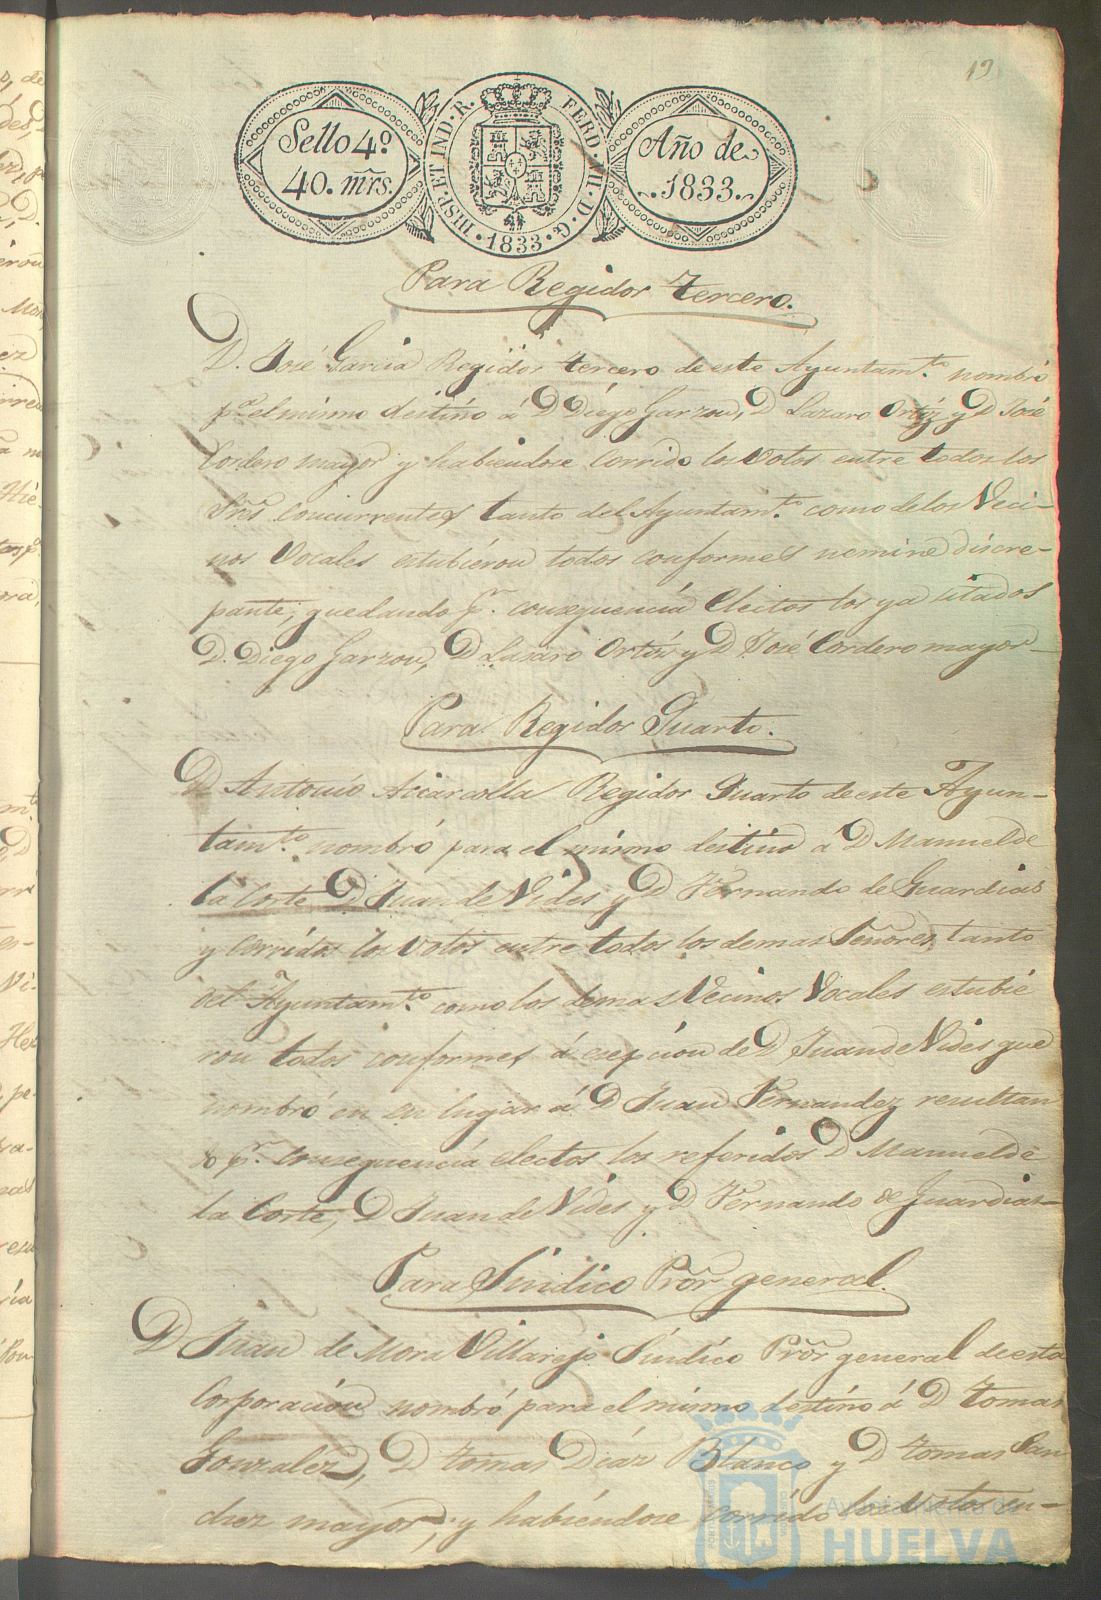 19
Sello 4º
40. mrs.
HISP. ET IND. R. FERD. VII. D. G.
1833
Año de
1833.
Para Regidor tercero.
D. José Garcia Regidor tercero de este Ayuntam.to nombró
p.a el mismo destino á D Diego Garzon, D Lazaro Ortiz y D José
Cordero mayor y habiendose corrido los Votos entre todos los
Sres concurrentes tanto del Ayuntam.to como de los Veci-
nos Vocales estubieron todos conformes nemine discre-
pante, quedando p.r consequencia electos los ya citados
D. Diego Garzon, D Lasaro Ortiz y D José Cordero mayor
Para Regidor Quarto.
D Antonio Regidor Quarto de este Ayun-
tam.to nombró para el mismo destino á D Manuel de
la Corte D Juan de Vides y D Fernando de Guardias
y corridos los Votos entre todos los demas Señores, tanto
del Ayuntam.to como los demas Vecinos Vocales estubie
ron todos conformes á esepcion de D Juan de Vides que
nombró en su lugar á D Juan Fernandez resultan
do p.r consequencia electos los referidos D Manuel de
la Corte, D Juan de Vides y D Fernando de Guardias
Para Sindico Pror general.
D Juan de Mora Villarejo Sindico Pror general de esta
Corporacion nombró para el mismo destino á D Tomas
Gonzalez, D Tomas Diaz Blanco y D Tomas San
chez mayor, y habiendose corrido los Votos en-
Ayuntamiento de
HUELVA